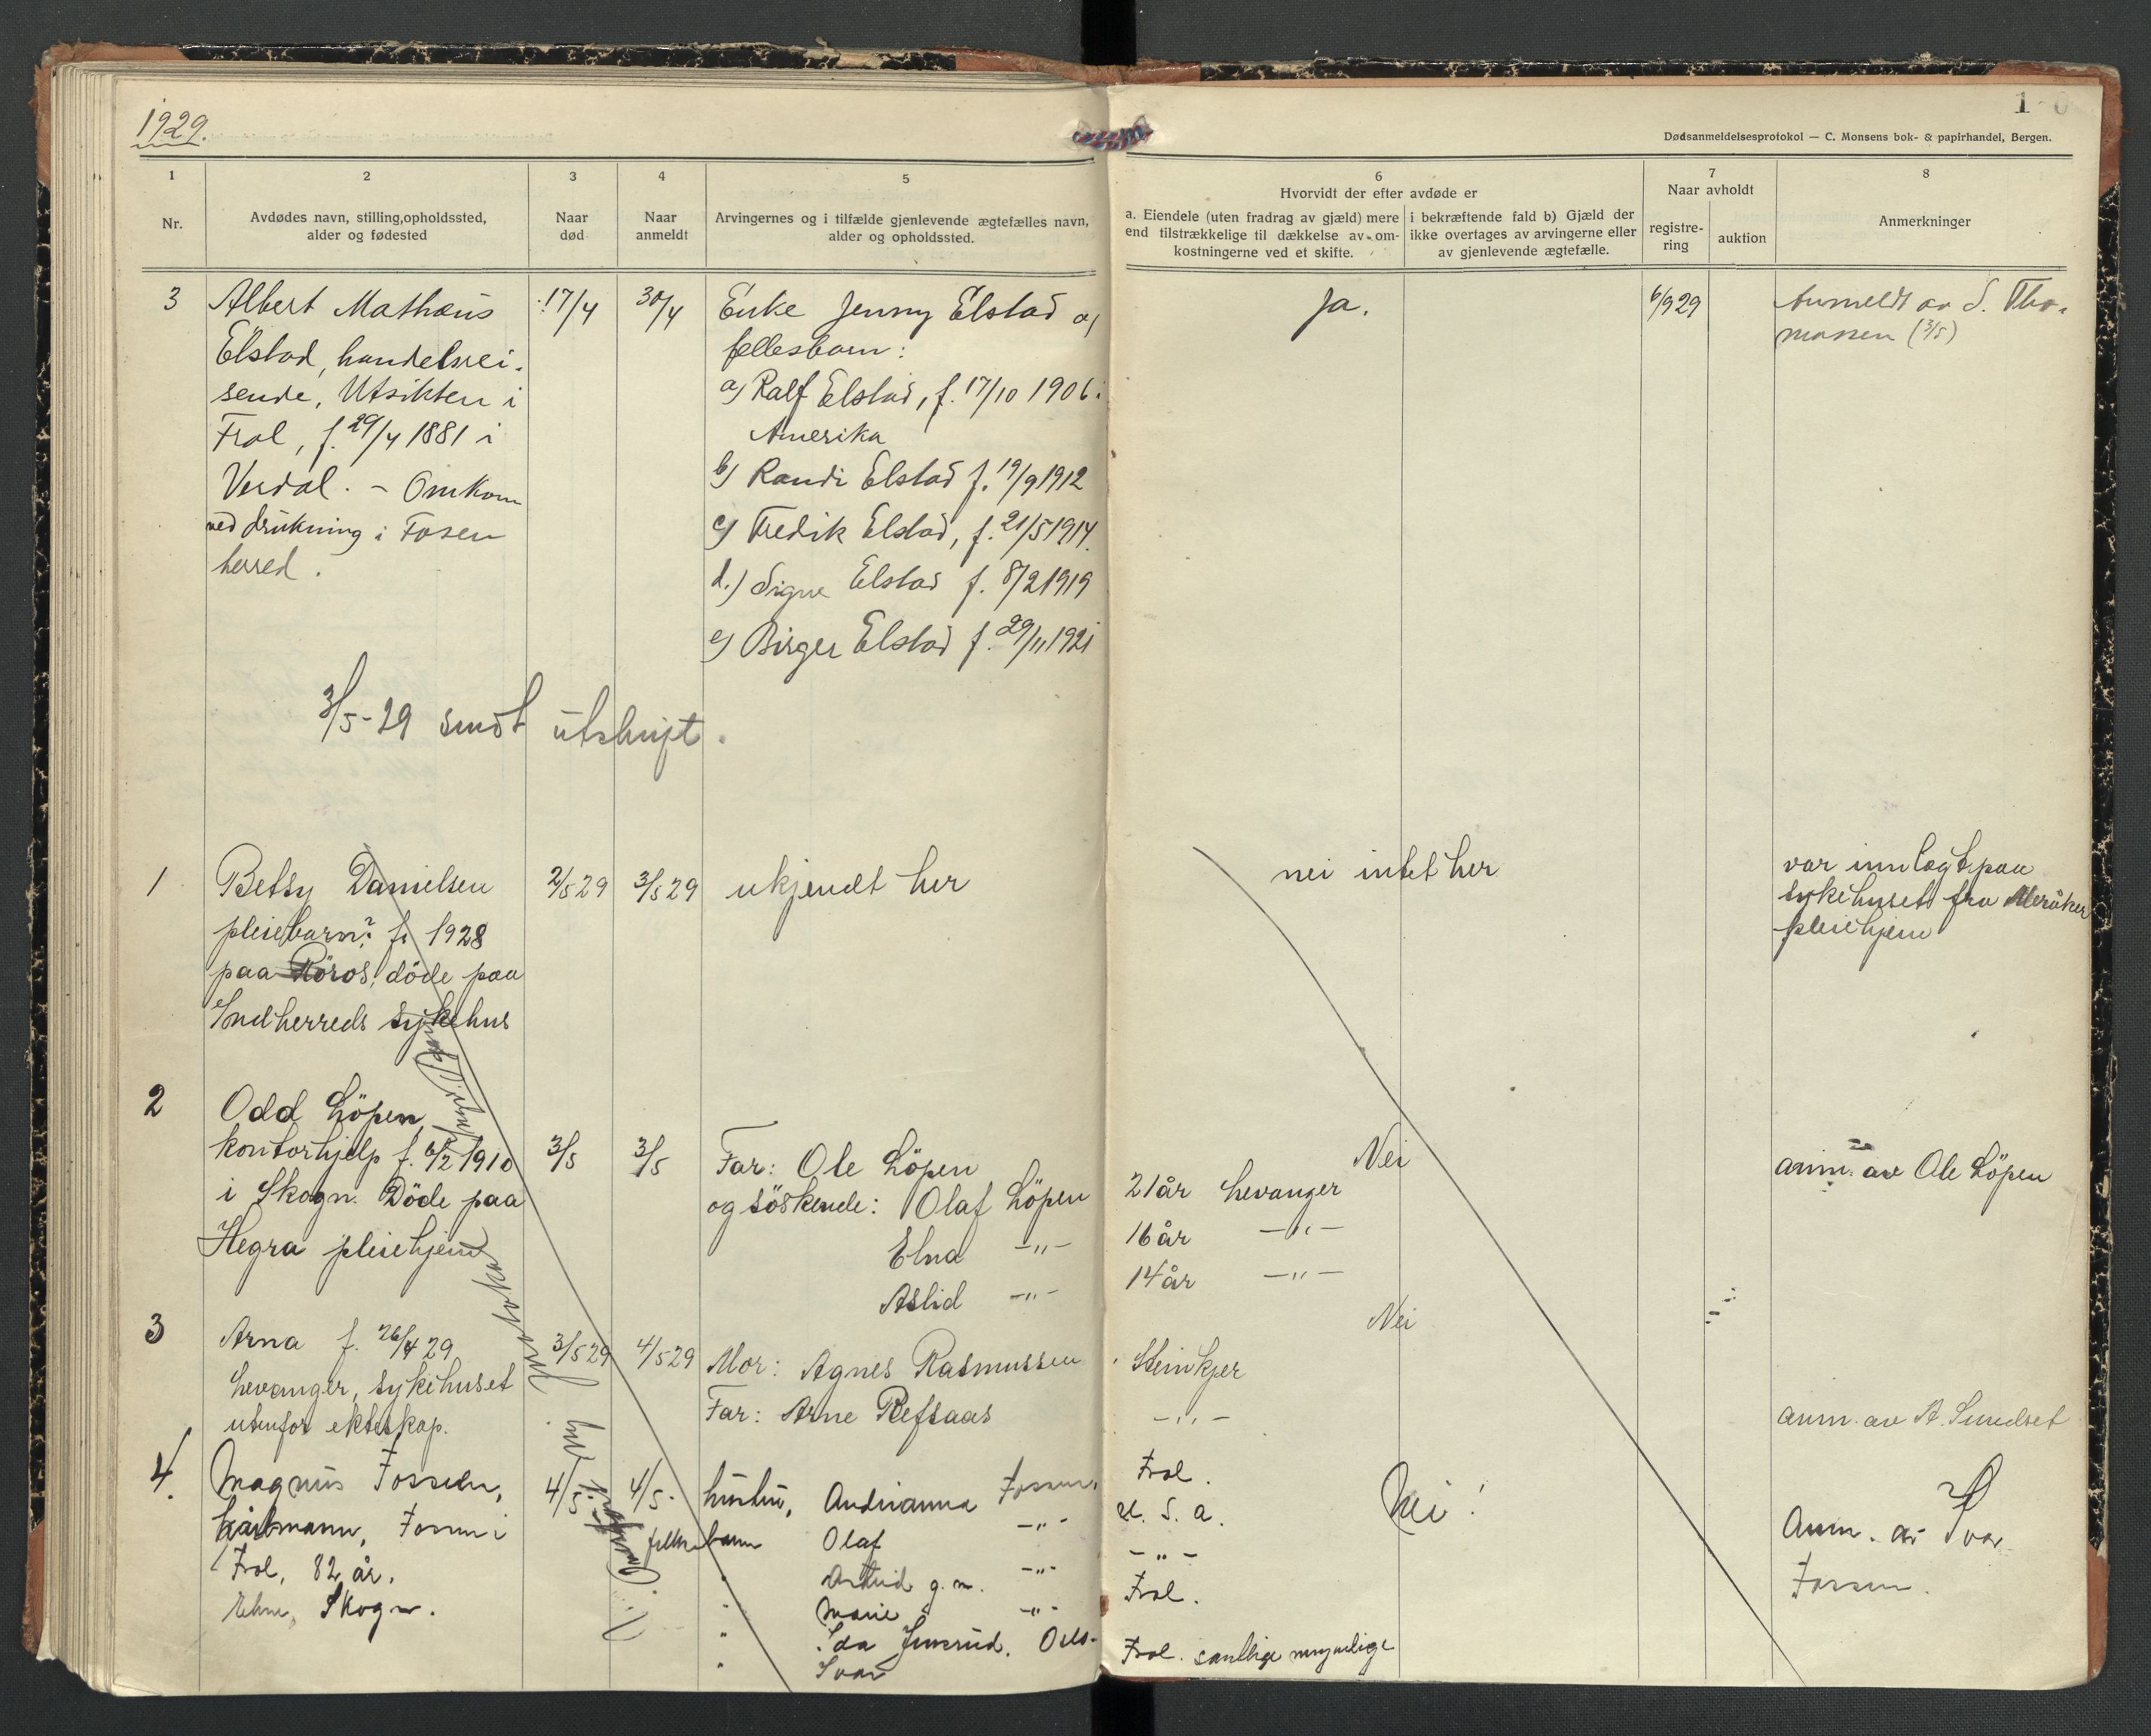 1929.
1 0
Dødsanmeldelsesprotokol — C. Monsens bok- & papirhandel, Bergen.
1
Nr.
2
Avdødes navn, stilling,opholdssted,
alder og fødested
3
Naar
død
4
Naar
anmeldt
5
Arvingernes og i tilfælde gjenlevende ægtefælles navn,
alder og opholdssted.
6
Hvorvidt der efter avdøde er
a. Eiendele (uten fradrag av gjæld) mere
end tilstrækkelige til dækkelse av om-
kostningerne ved et skifte.
i bekræftende fald b) Gjæld der
ikke overtages av arvingerne eller
av gjenlevende ægtefælle.
7
Naar avholdt
registre-
ring
auktion
8
Anmerkninger
3
Albert Mathæus
Elstad, handelsrei-
sende, Utsikten i
Frol, f. 29/4 1881 i
Verdal. - Omkom
ved drukning i Fosen
herred.
17/4
30/4
Enke Jenny Elstad og
fellesbarn:
a) Ralf Elstad, f. 17/10 1906 i
Amerika
b) Randi Elstad f. 19/9 1912
c) Fredik Elstad, f. 21/5 1914.
d.) Signe Elstad f. 8/2 1919
e) Birger Elstad f. 29/11 1921
Ja.
6/9 29
Anmeldt av S. Tho-
massen (3/5)
3/5-29 sendt utskrift.
1
Betsy Danielsen
pleiebarn? f. 1928
paa Röros, döde paa
Indherreds sykehus
2/5 29
3/5 29
ukjendt her
nei intet her
var innlagt paa
sykehuset fra Meråker
pleiehjem
2
Odd Löpen,
kontorhjelp f. 6/2 1910
i Skogn. Döde paa
Hegra pleiehjem
3/5
3/5
Far: Ole Löpen
og söskende: Olaf Löpen
21 år Levanger
Elna -"-
16 år -"-
Aslid -"-
14 år -"-
Nei
anm. av Ole Löpen
3
Arna f. 26/4 29
Levanger, sykehuset
utenfor ekteskap.
3/5 29
4/5 29
Mor: Agnes Rasmussen
Steinkjer
Far: Arne Refsaas
-"-
Nei
anm. av A. Sundset
4.
Magnus Fossum,
kårmann, Fossum i
Frol, 82 år.
Skogn.
4/5
4/5
hustru, Andrianna Fossum,
Frol.
felles barn Olaf -"-
U. S. A.
" Astrid g. m. -"-
-"-
" Marie -"-
Frol.
" Ida Oslo
" Ivar
Frol. samtlige myndige
Nei!
Anm. av Ivar
Fossum.